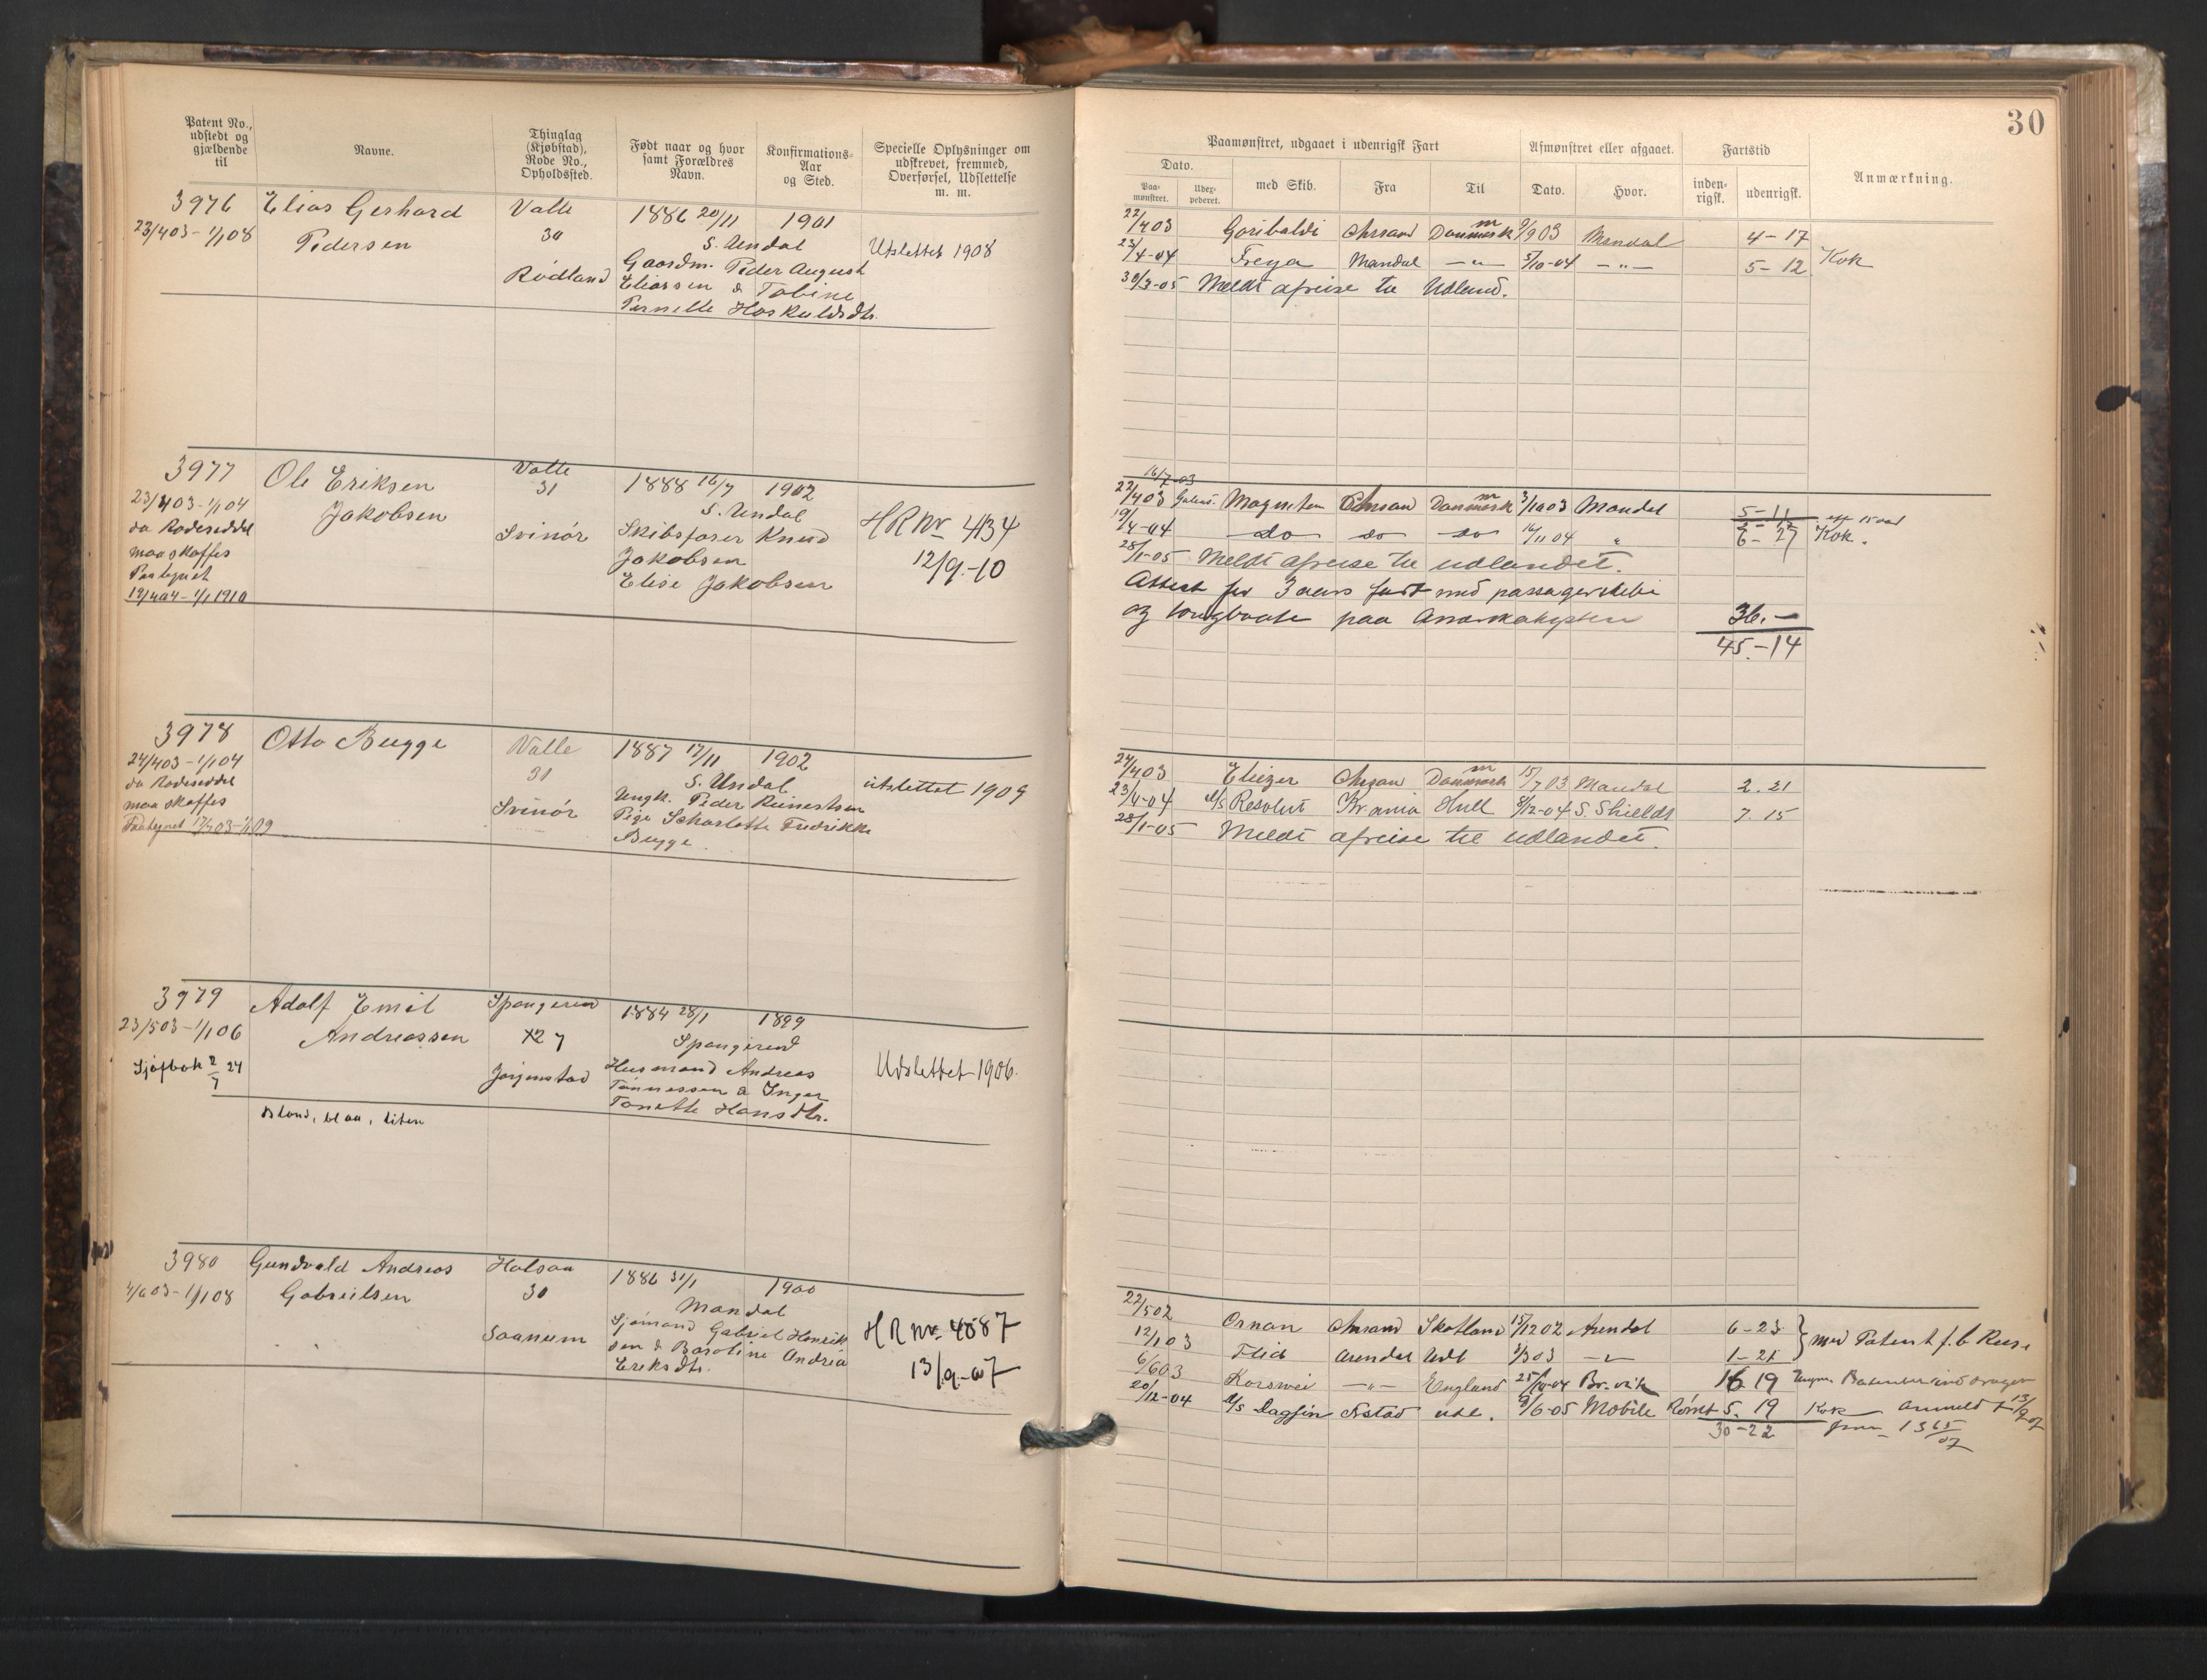 30
Patent No., udstedt og gjældende til
Navne.
Thinglag (Kjøbstad), Rode No., Opholdssted.
Født naar og hvor samt Forældres Navn.
Konfirmations-Aar og Sted.
Specielle Oplysninger om udskrevet, fremmed, Overførsel, Udslettelse m. m.
Paamønstret, udgaaet i udenrigsk Fart
Afmønstret eller afgaaet.
Fartstid
Anmærkning.
Dato.
Paamønstret.
med Skib.
Fra
Til
Dato.
Hvor.
indenrigsk.
udenrigsk.
3976
23/4 03 - 1/1 08
Elias Gerhard
Pedersen
Valle
30
Rødland
1886 20/11 1901
S. Undal
Gaardm. Peder August
Eliassen & Tobine
Pernille Hoskuldsdtr.
Udslettet 1908
22/4 03 Garibaldi Chrsand Danmark 9/9 03 Mandal 4-17
23/4-04 Freya Mandal -"- 5/10-04 -"- 5-12 Kok
30/3-05 Meldt afreise til Udland.
3977
23/4 03 - 1/1 04
da Rodeseddel
maa skaffes
Paategnet
12/4 04 - 1/1 1910
Ole Eriksen
Jakobsen
Valle
31
Svinør
1888 16/7 1902
S. Undal
Skibsfører Knud
Jakobsen
Elise Jakobsen
HR Nr 434
12/9.-10
16/7-03
22/4 03 Magneten Chrsan Danmark 3/10 03 Mandal 5-11
19/4-04 do do do 16/11 04 " 6-27 Kok.
28/1-05 Meldt afreise til udlandet.
Attest for 3 aars fart med passagerskibe
og tougbaate paa Amerikakysten 36.-
45.-14
3978
24/4 03 - 1/1 04
da Rodeseddel
maa skaffes
Otto Bugge
Valle
31
Svinør
1887 17/11 1902
S. Undal
Ungk. Peder Reinertsen
Pige Scharlotte Fredrikke
Bugge.
utslettet 1909
24/4 03 Eliezer Chrsan Danmark 15/7 03 Mandal 2.21
23/4-04 Resolut Kr ania Hull 8/12-04 S. Shields 7.15
28/1-05 Meldt afreise til udlandet.
3979
23/5 03 - 1/1 06
Sjøfbok 2/7 24
Adolf Emil
Andreassen
Blond, blaa, liten
Spangereid
27
Jørgenstad
1884 28/1 1899
Spangereid
Husmand Andreas
Tønnessen & Inger
Tonette Hansdtr.
Udslettet 1906.
3980
4/6 03 - 1/1 08
Gundvald Andreas
Gabrielsen
Halsaa
30
Saanum
1886 31/1 1900
Mandal
Sjømand Gabriel Henrik
sen & Baroline Andrea
Eriksdtr.
HR Nr. 4887
13/9-07
22/5 02 Ornan Chrsand Skotland 15/12 02 Arendal 6-23
12/1 03 Flid Arendal Udl 3/3 03 -"- 1-21
med Patent f. b Reise
6/6 03 Korsvei -"- England 25/10-04 Br.vik 16 19
20/12-04 Dagfin Frstad udl. 9/6-05 Mobile Rømt 5. 19 Kok
30-22